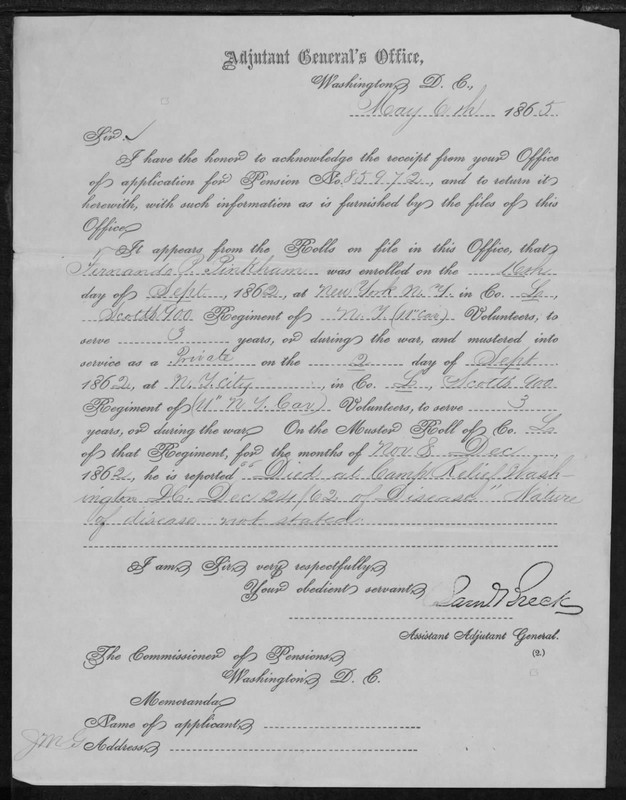 Adjutant General's Office,
Washington, D. C.,
May 6th 1865
Sir:
I have the honor to acknowledge the receipt from your Office
of application for Pension No. 85972, and to return it
herewith, with such information as is furnished by the files of this
Office.
It appears from the Rolls on file in this Office, that
Fernando P. Pinkham was enrolled on the
day of Sept, 1862, at New York N.Y. in Co. L,
Scotts 900 Regiment of N.Y. (11" Cav) Volunteers, to
serve 3 years, or during the war, and mustered into
service as a Private on the 2 day of Sept
1862, at N.Y. City, in Co. L, Scotts 900
Regiment of (11" N.Y. Cav) Volunteers, to serve 3
years, or during the war. On the Muster Roll of Co. L
of that Regiment, for the months of Nov & Dec,
1862, he is reported "Died at Camp Relief Wash-
ington D.C. Dec 24/62 of Disease" Nature
of disease not stated.
I am, Sir, very respectfully,
Your obedient servant,
Sam'l Breck
Assistant Adjutant General.
(2.)
The Commissioner of Pensions,
Washington, D. C.
Memoranda,
Name of applicant,
J.M.G. Address,